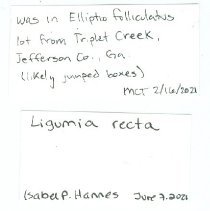 was in Elliptio folliculatus
lot from Triplet Creek,
Jefferson Co., Ga
(likely jumped boxes)
MCT 2/16/2021
Ligumia recta
Isabel P. Hannes June 7. 2021